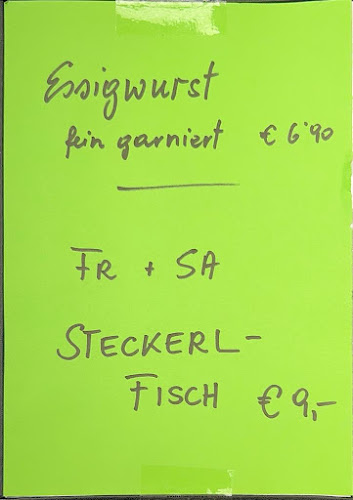 Essigwurst
fein garniert € 6'90
FR + SA
STECKERL-
FISCH € 9,-